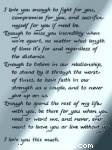 I love you enough to fight for you,
compromise for you, and sacrifice
myself for you if need be.
Enough to miss you incredibly when
we're apart, no matter what length
of time it's for and regardless of
the distance.
Enough to believe in our relationship,
to stand by it through the worst
of times, to have faith in our
strength as a couple, and to never
give up on us.
Enough to spend the rest of my life
with you, be there for you when you
need or want me, and never, ever
want to leave you or live without you.
I love you this much.